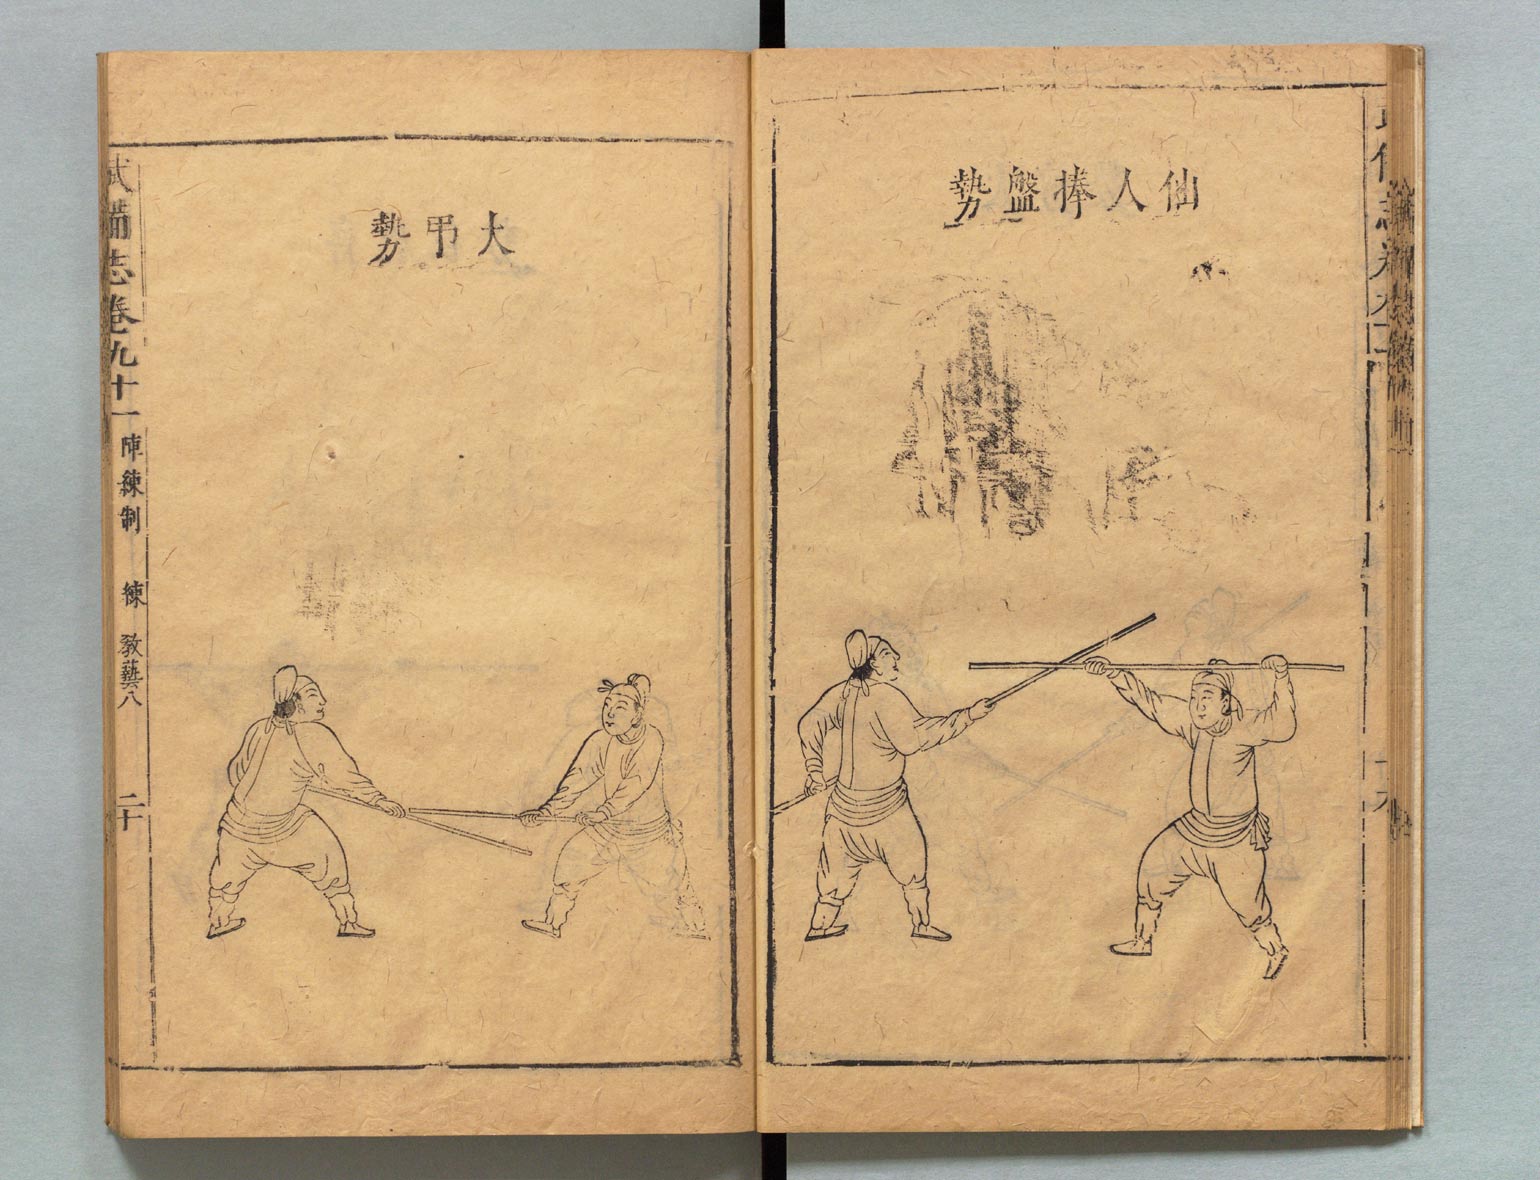 仙人捧盤勢
大弔勢
武備志卷九十一 陣練制 練 教藝八 二十